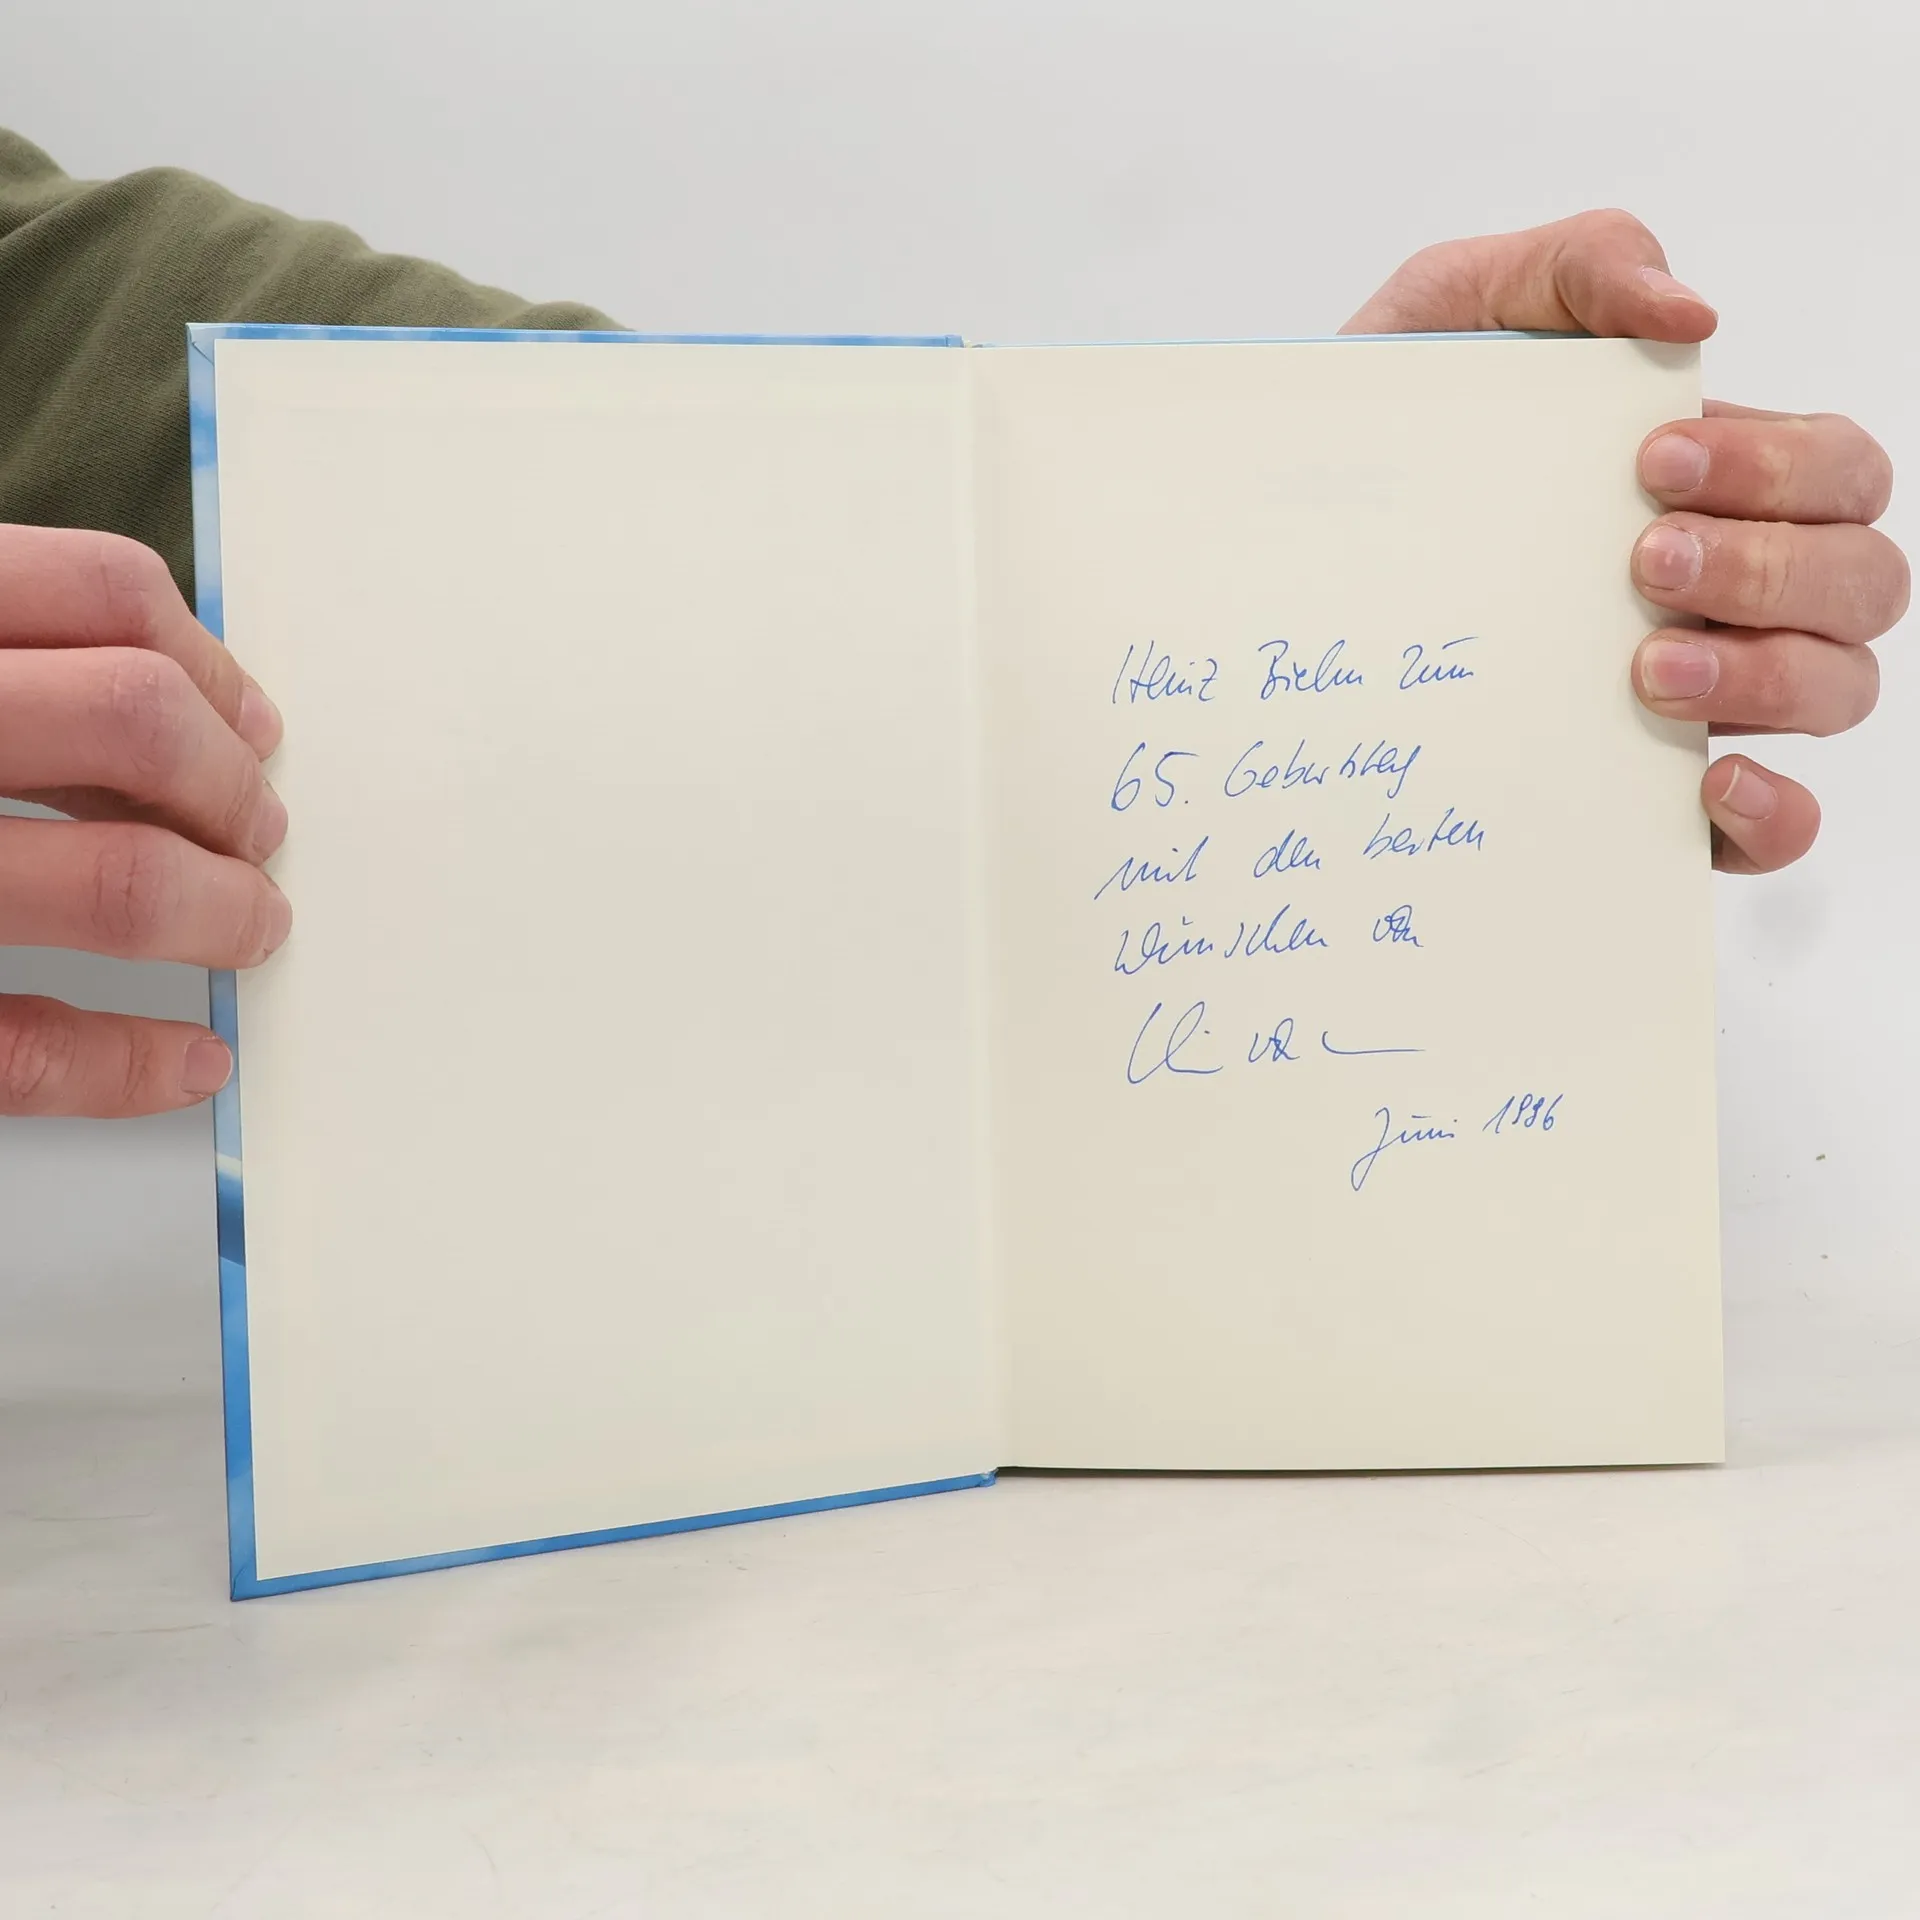 Heinz Biehn zum
65. Geburtstag
mit den besten
Wünschen von
Juni 1996